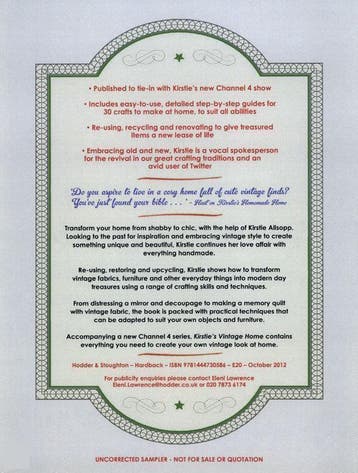 • Published to tie-in with Kirstie's new Channel 4 show
• Includes easy-to-use, detailed step-by-step guides for
30 crafts to make at home, to suit all abilities
• Re-using, recycling and renovating to give treasured
items a new lease of life
• Embracing old and new, Kirstie is a vocal spokesperson
for the revival in our great crafting traditions and an
avid user of Twitter
'Do you aspire to live in a cosy home full of cute vintage finds?
You've just found your bible . . .' - Heat on Kirstie's Homemade Home
Transform your home from shabby to chic, with the help of Kirstie Allsopp.
Looking to the past for inspiration and embracing vintage style to create
something unique and beautiful, Kirstie continues her love affair with
everything handmade.
Re-using, restoring and upcycling, Kirstie shows how to transform
vintage fabrics, furniture and other everyday things into modern day
treasures using a range of crafting skills and techniques.
From distressing a mirror and decoupage to making a memory quilt
with vintage fabric, the book is packed with practical techniques that
can be adapted to suit your own objects and furniture.
Accompanying a new Channel 4 series, Kirstie's Vintage Home contains
everything you need to create your own vintage look at home.
Hodder & Stoughton – Hardback – ISBN 9781444730586 – £20 – October 2012
For publicity enquiries please contact Eleni Lawrence
Eleni.Lawrence@hodder.co.uk or 020 7873 6174
UNCORRECTED SAMPLER - NOT FOR SALE OR QUOTATION